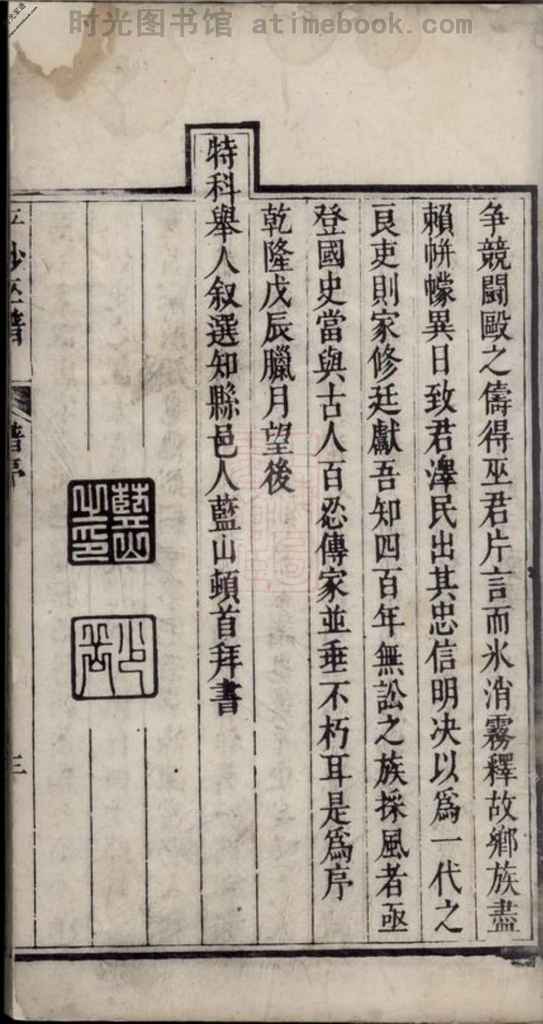 时光图书馆 atimebook.com
争競鬪毆之儔得巫君片言而氷消霧釋故鄉族盡
賴帡幪異日致君澤民出其忠信明决以爲一代之
良吏則家修廷獻吾知四百年無訟之族採風者亟
登國史當與古人百忍傳家並垂不朽耳是爲序
乾隆戊辰臘月望後
特科舉人叙選知縣邑人藍山頓首拜書
藍山之印
平沙巫譜
譜序
三